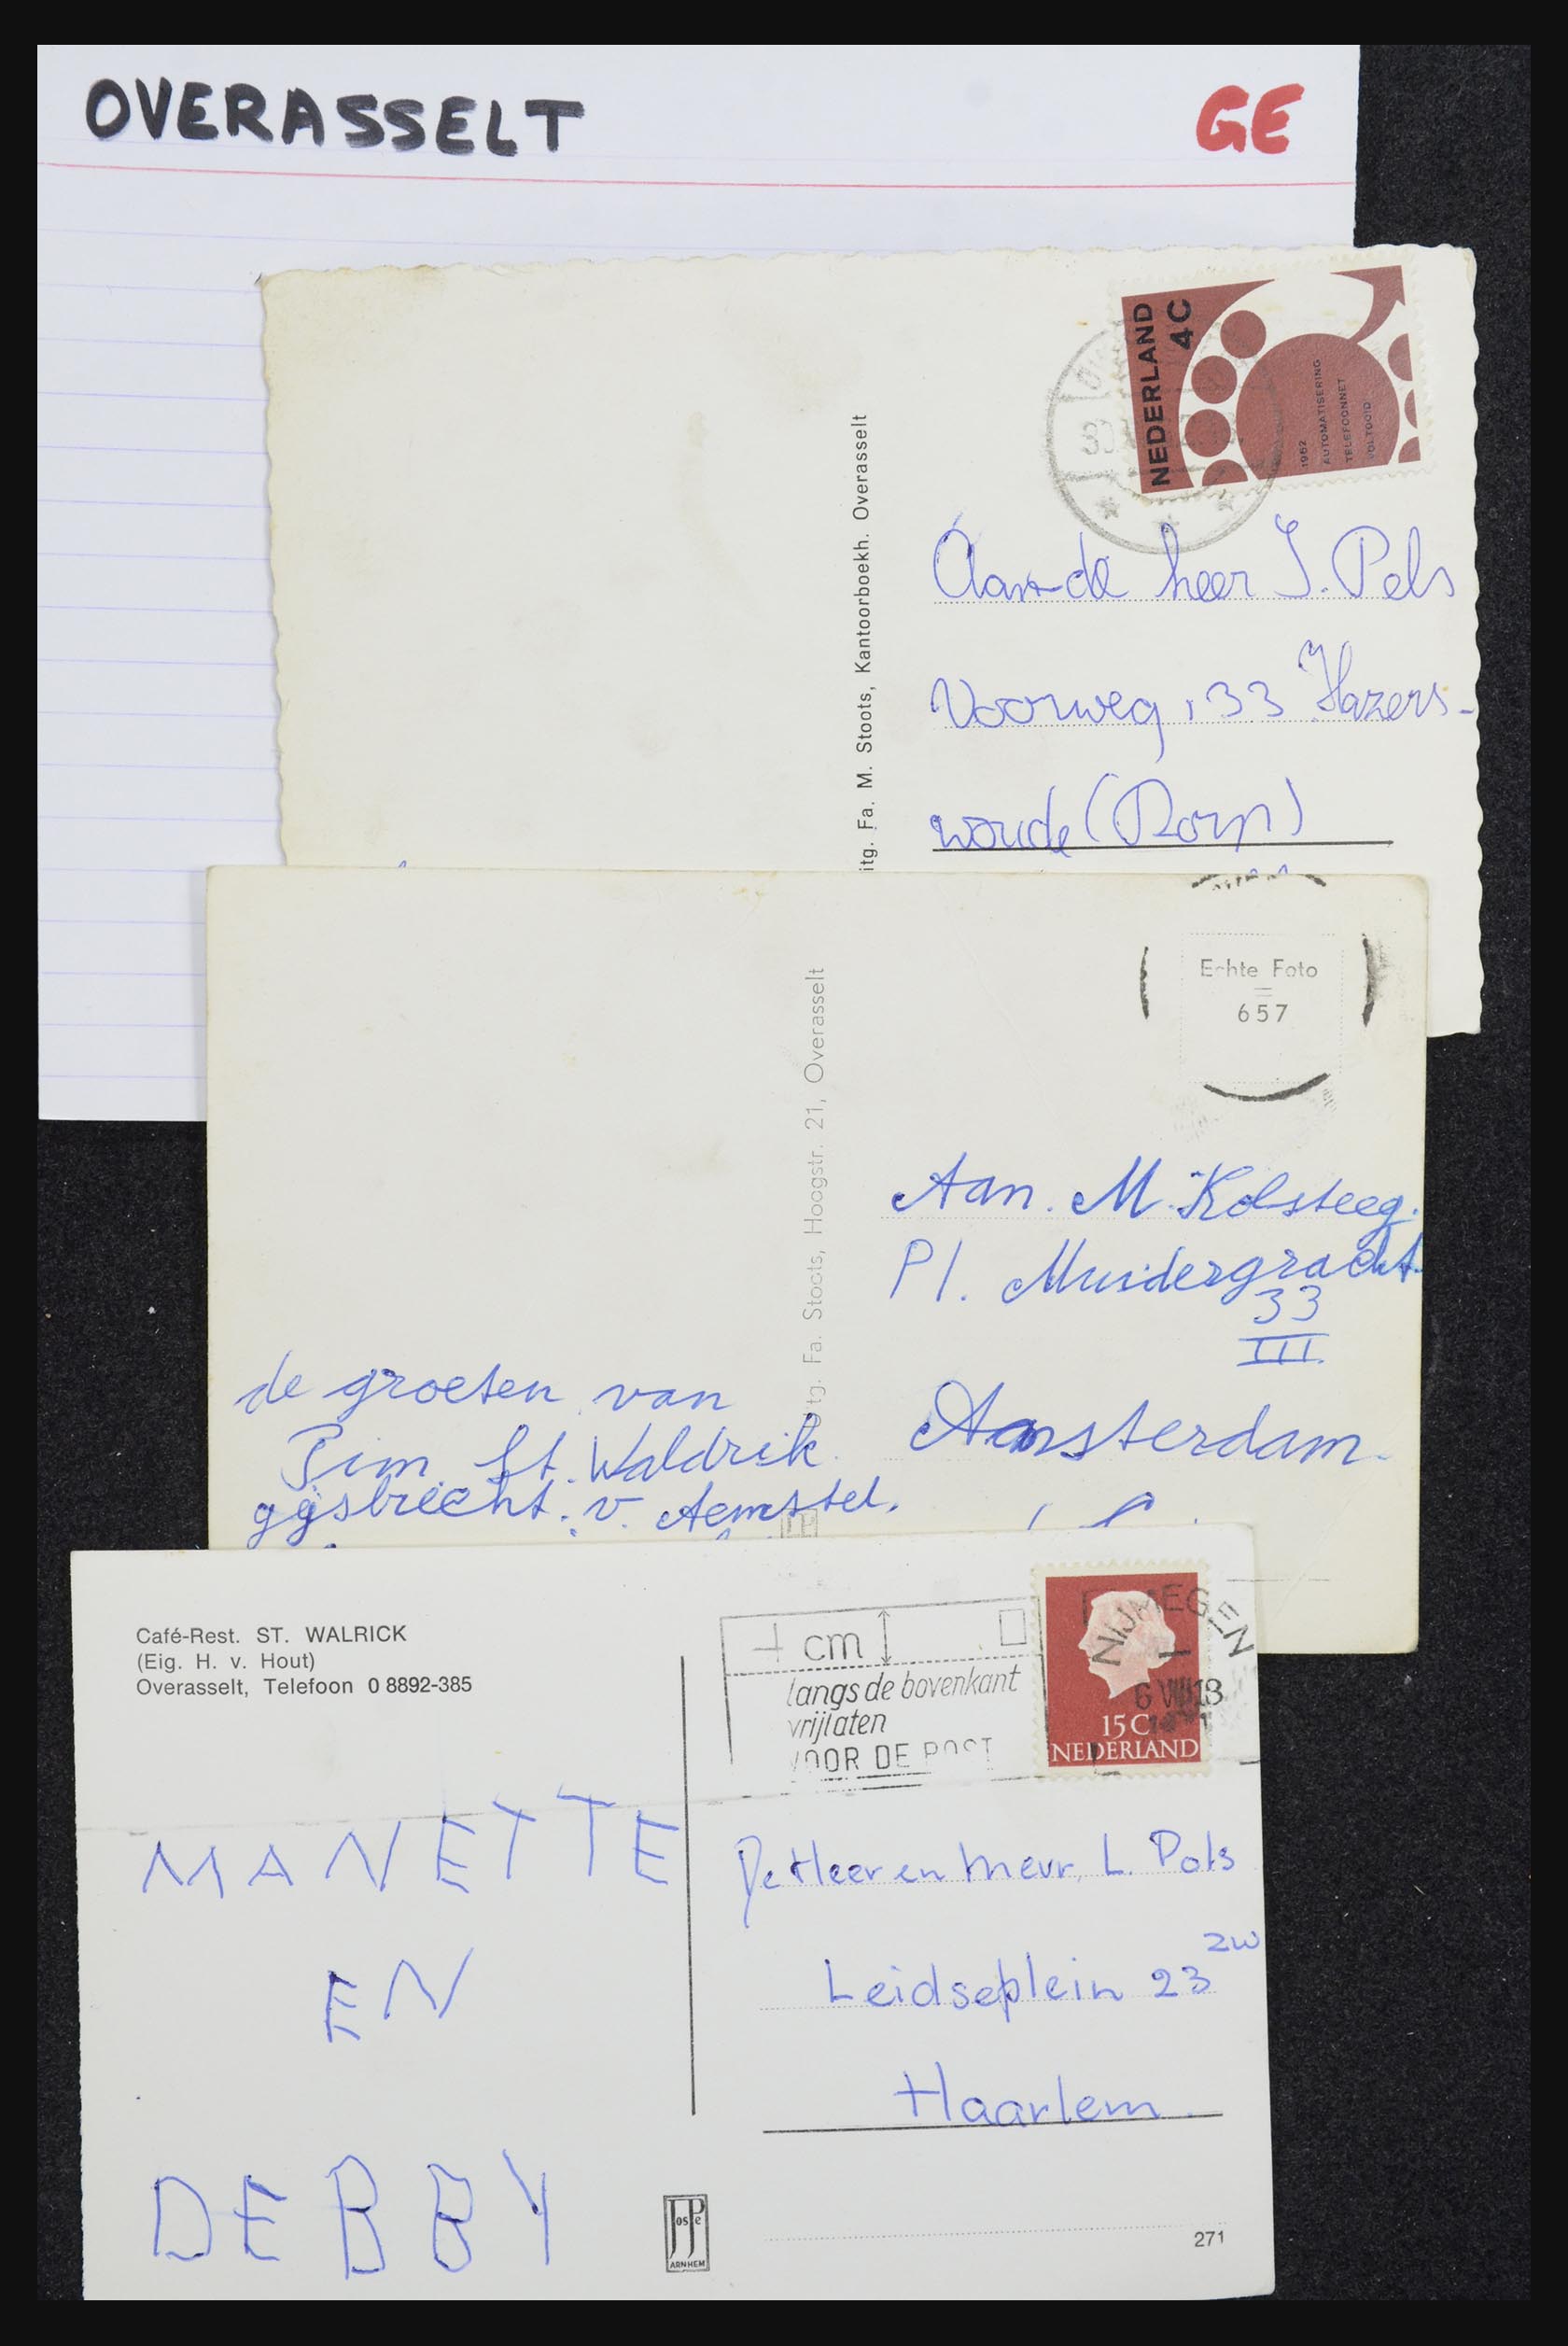 OVERASSELT GE
NEDERLAND
4C
1962
AUTOMATISERING
TELEFOONNET
VOLTOOID
itg. Fa. M. Stoots, Kantoorboekh. Overasselt
Aan de heer J. Pels
Voorweg, 33 Hazers-
woude (Dorp)
Echte Foto
657
Uitg. Fa. Stoots, Hoogstr. 21, Overasselt
Aan. M. Kolsteeg.
Pl. Muidergracht
33
III
Amsterdam.
de groeten van
Pim. St. Waldrik.
gijsbrecht. v. Aemstel.
Café-Rest. ST. WALRICK
(Eig. H. v. Hout)
Overasselt, Telefoon 0 8892-385
cm
langs de bovenkant
vrijlaten
VOOR DE POST
NIJMEGEN
15 C
NEDERLAND
MANETTE
EN
DEBBY
De Heer en Mevr. L. Pols
Leidseplein 23 zw
Haarlem.
JosPe
ARNHEM
271